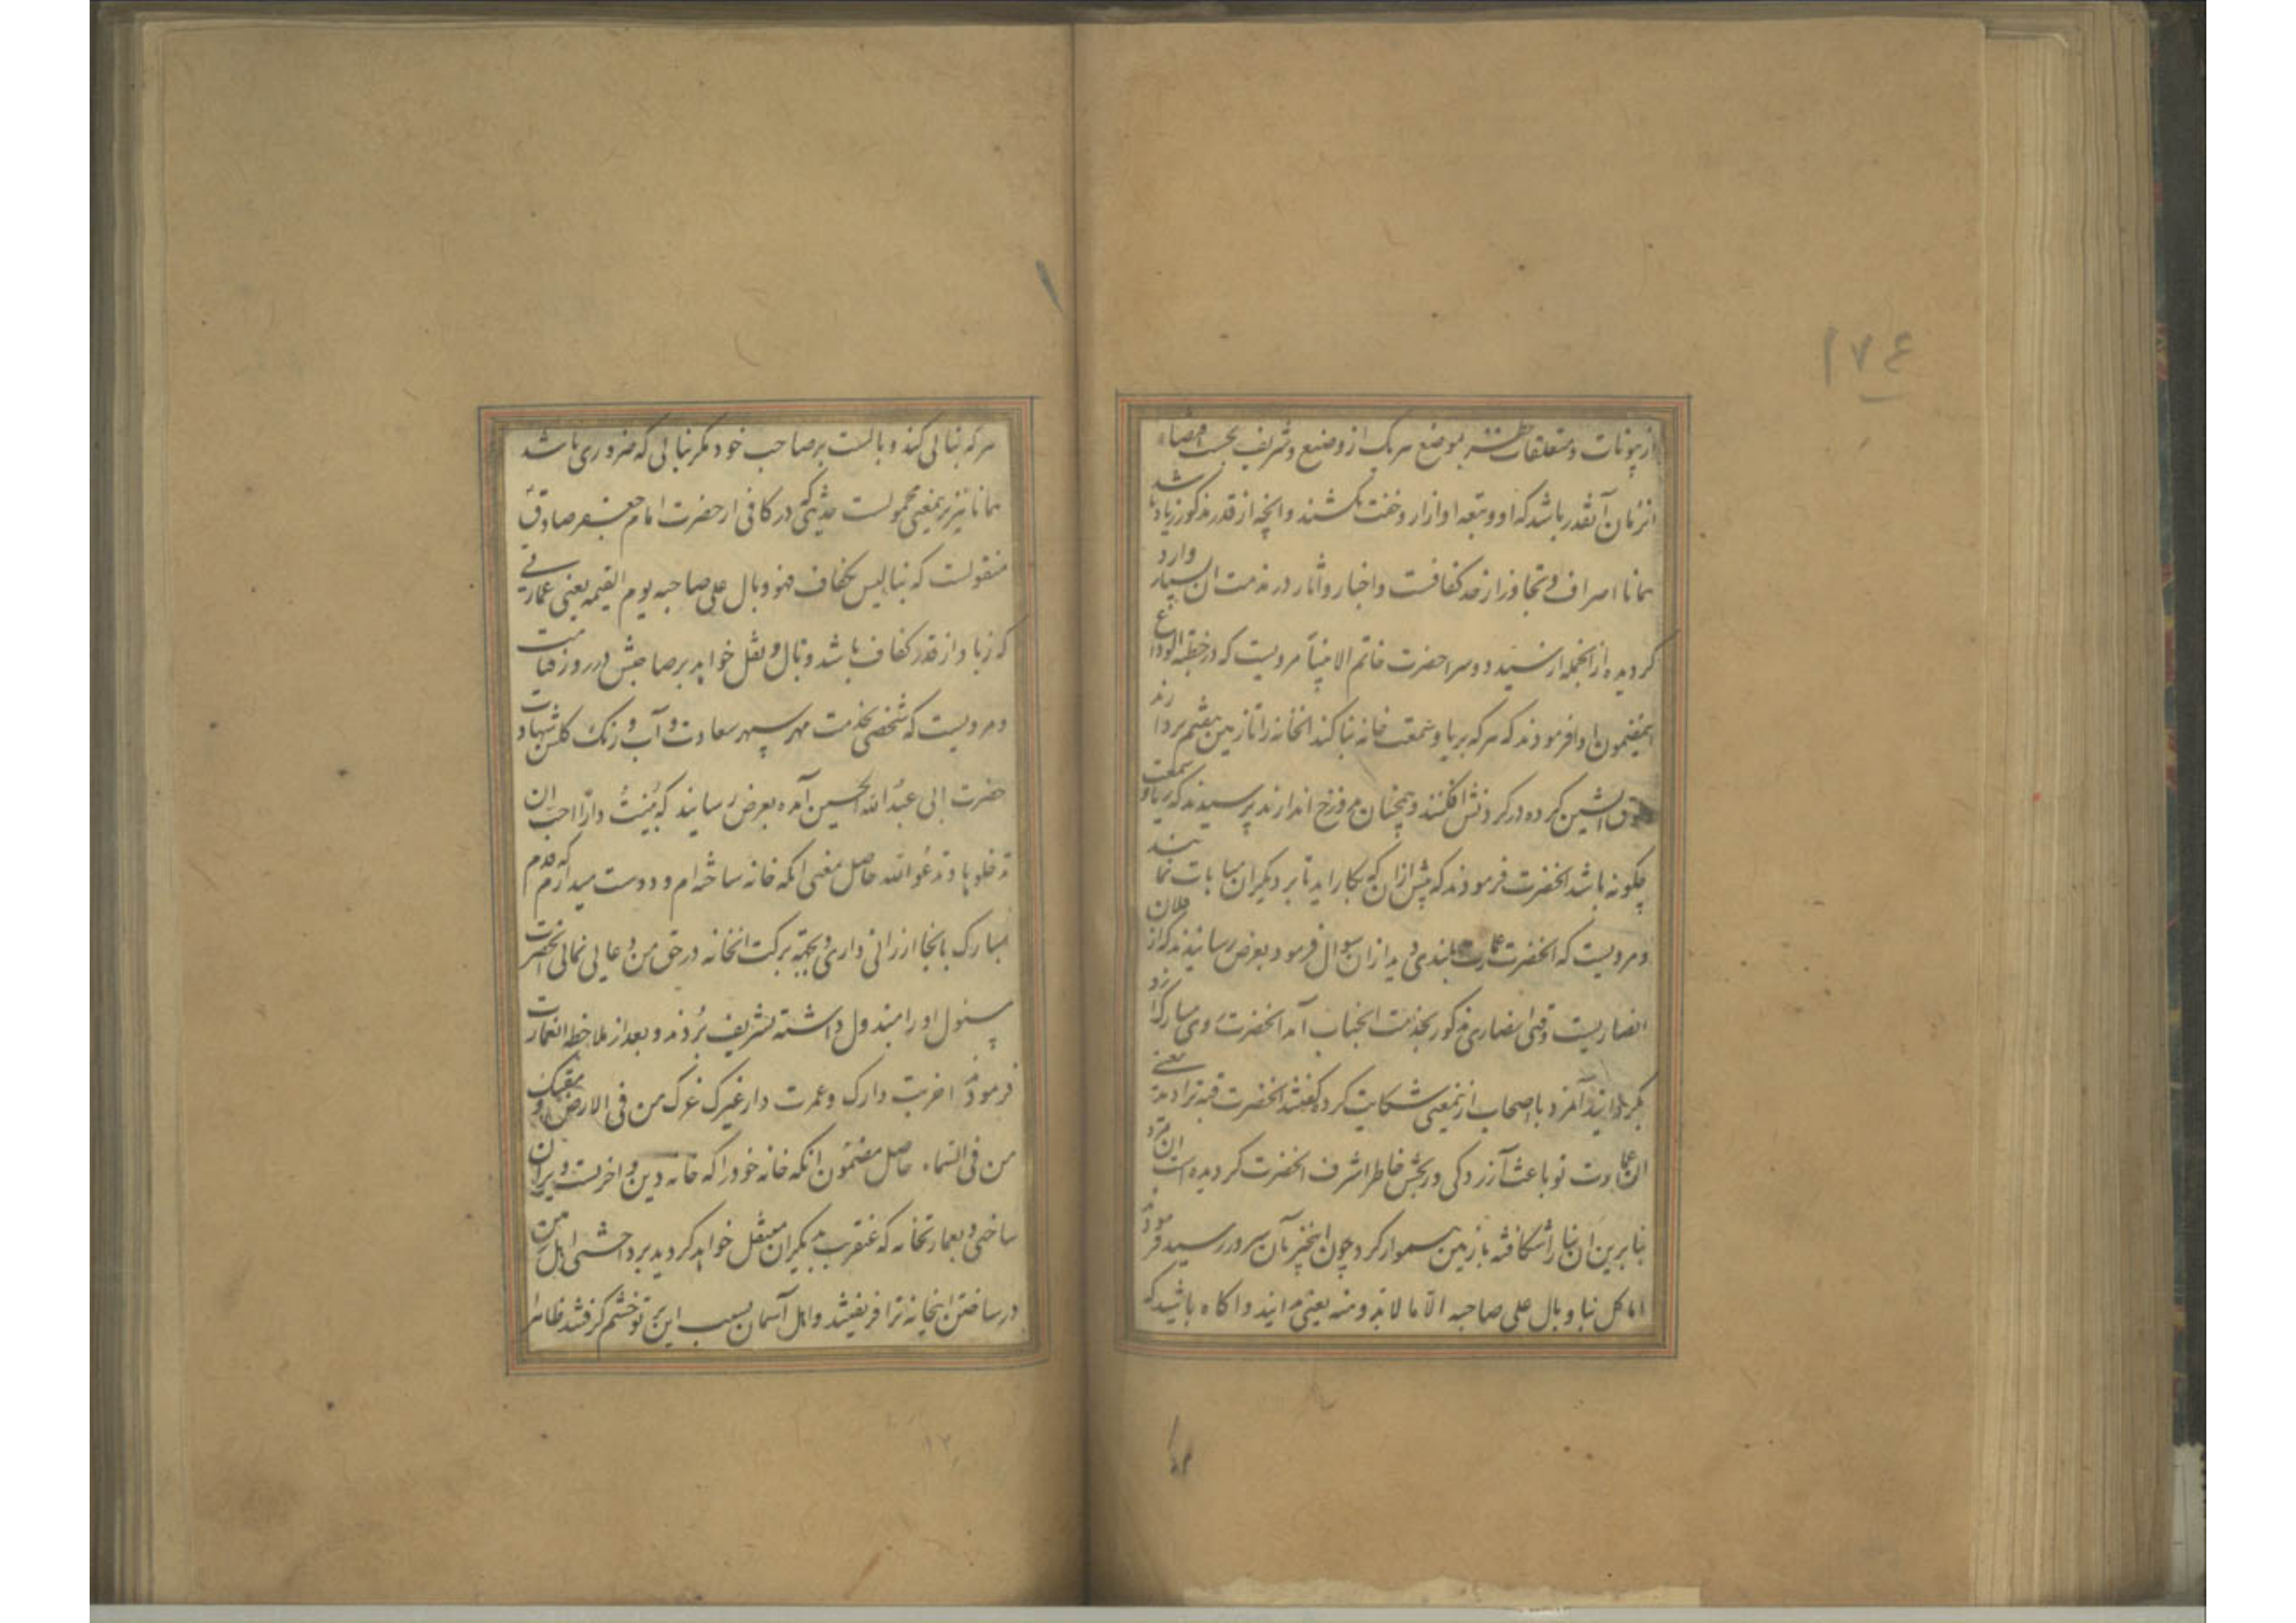 ۱۷۶
از بیوتات و متعلقات بموضع هر یک از وضیع و شریف بحسب اقتضاء
انزمان آنقدر باشد که او و تبعه او ازار و خفت نکشند و انچه از قدر مذکور زیاده باشد
همانا اصراف و تجاوز از حد کفافست و اخبار و اثار در مذمت ان بسیار وارد
کردیده از انجمله از سید دوسرا حضرت خاتم الانبیا مرویست که در خطبه الوداع
اینمضمون ادا فرمودند که هر که بریا و سمعت خانه بنا کند انخانه را تا زمین هفتم بردارند
طوق اتشین کرده در کردنش افکنند و همچنان بدوزخ اندازند پرسیدند که ریا و سمعت
چکونه باشد انحضرت فرمودند که بیش از ان که بکار اید تا بر دیکران مباهات نمایند
و مرویست که انحضرت عمارت بلندی دید از ان سوال فرمود بعرض رسانیدند که از فلان
انصاریست وقتی انصاری مذکور بخدمت انجناب آمد انحضرت روی مبارک از او
بکردانید آنمرد با اصحاب از نمعنی شکایت کرد کفتند انحضرت قبه ترا دیده یعنی
ان عمارت تو باعث آزردکی و رنجش خاطر اشرف انحضرت کردیده است ان مرد
بنا برین ان بنا را شکافته با زمین هموار کرد چون اینخبر بآن سرور رسید فرمودند
اما کل بنا وبال علی صاحبه الا ما لا بد منه یعنی بدانید و اکاه باشید که
هر که بنائی کند وبالست بر صاحب خود مکر بنائی که ضروری باشد
همانا نیز برنمعنی محمولست حدیثی که در کافی از حضرت امام جعفر صادق
منقولست که بنا لیس بکفاف فهو وبال علی صاحبه یوم القیمه یعنی عمارتی
که زیاد از قدر کفاف باشد وبال و ثقل خواهد بر صاحبش در روز قیامت
و مرویست که شخصی بخدمت مهر سپهر سعادت و آب و رنک کلشن شهادت
حضرت ابی عبد الله الحسین آمده بعرض رسانید که بنیت دارا احب ان
تدخلوها و تدعو الله حاصل معنی انکه خانه ساخته ام و دوست میدارم که قدم
مبارک بانجا ارزانی داری و بجهة برکت انخانه در حق من دعایی نمائی انحضرت
مسئول او را مبذول داشته تشریف بردند و بعد از ملاحظه انعمارت
فرمودند اخربت دارک و عمرت دار غیرک غرک من فی الارض و مقتک
من فی السماء حاصل مضمون انکه خانه خود را که خانه دین و اخرتست ویران
ساختی و بعمارتخانه که عنقرب بدیکران منتقل خواهد کردید برداختی اهل زمین
در ساختن اینخانه ترا فریفتند و اهل آسمان بسبب این بر تو خشم کرفتند ظاهرا